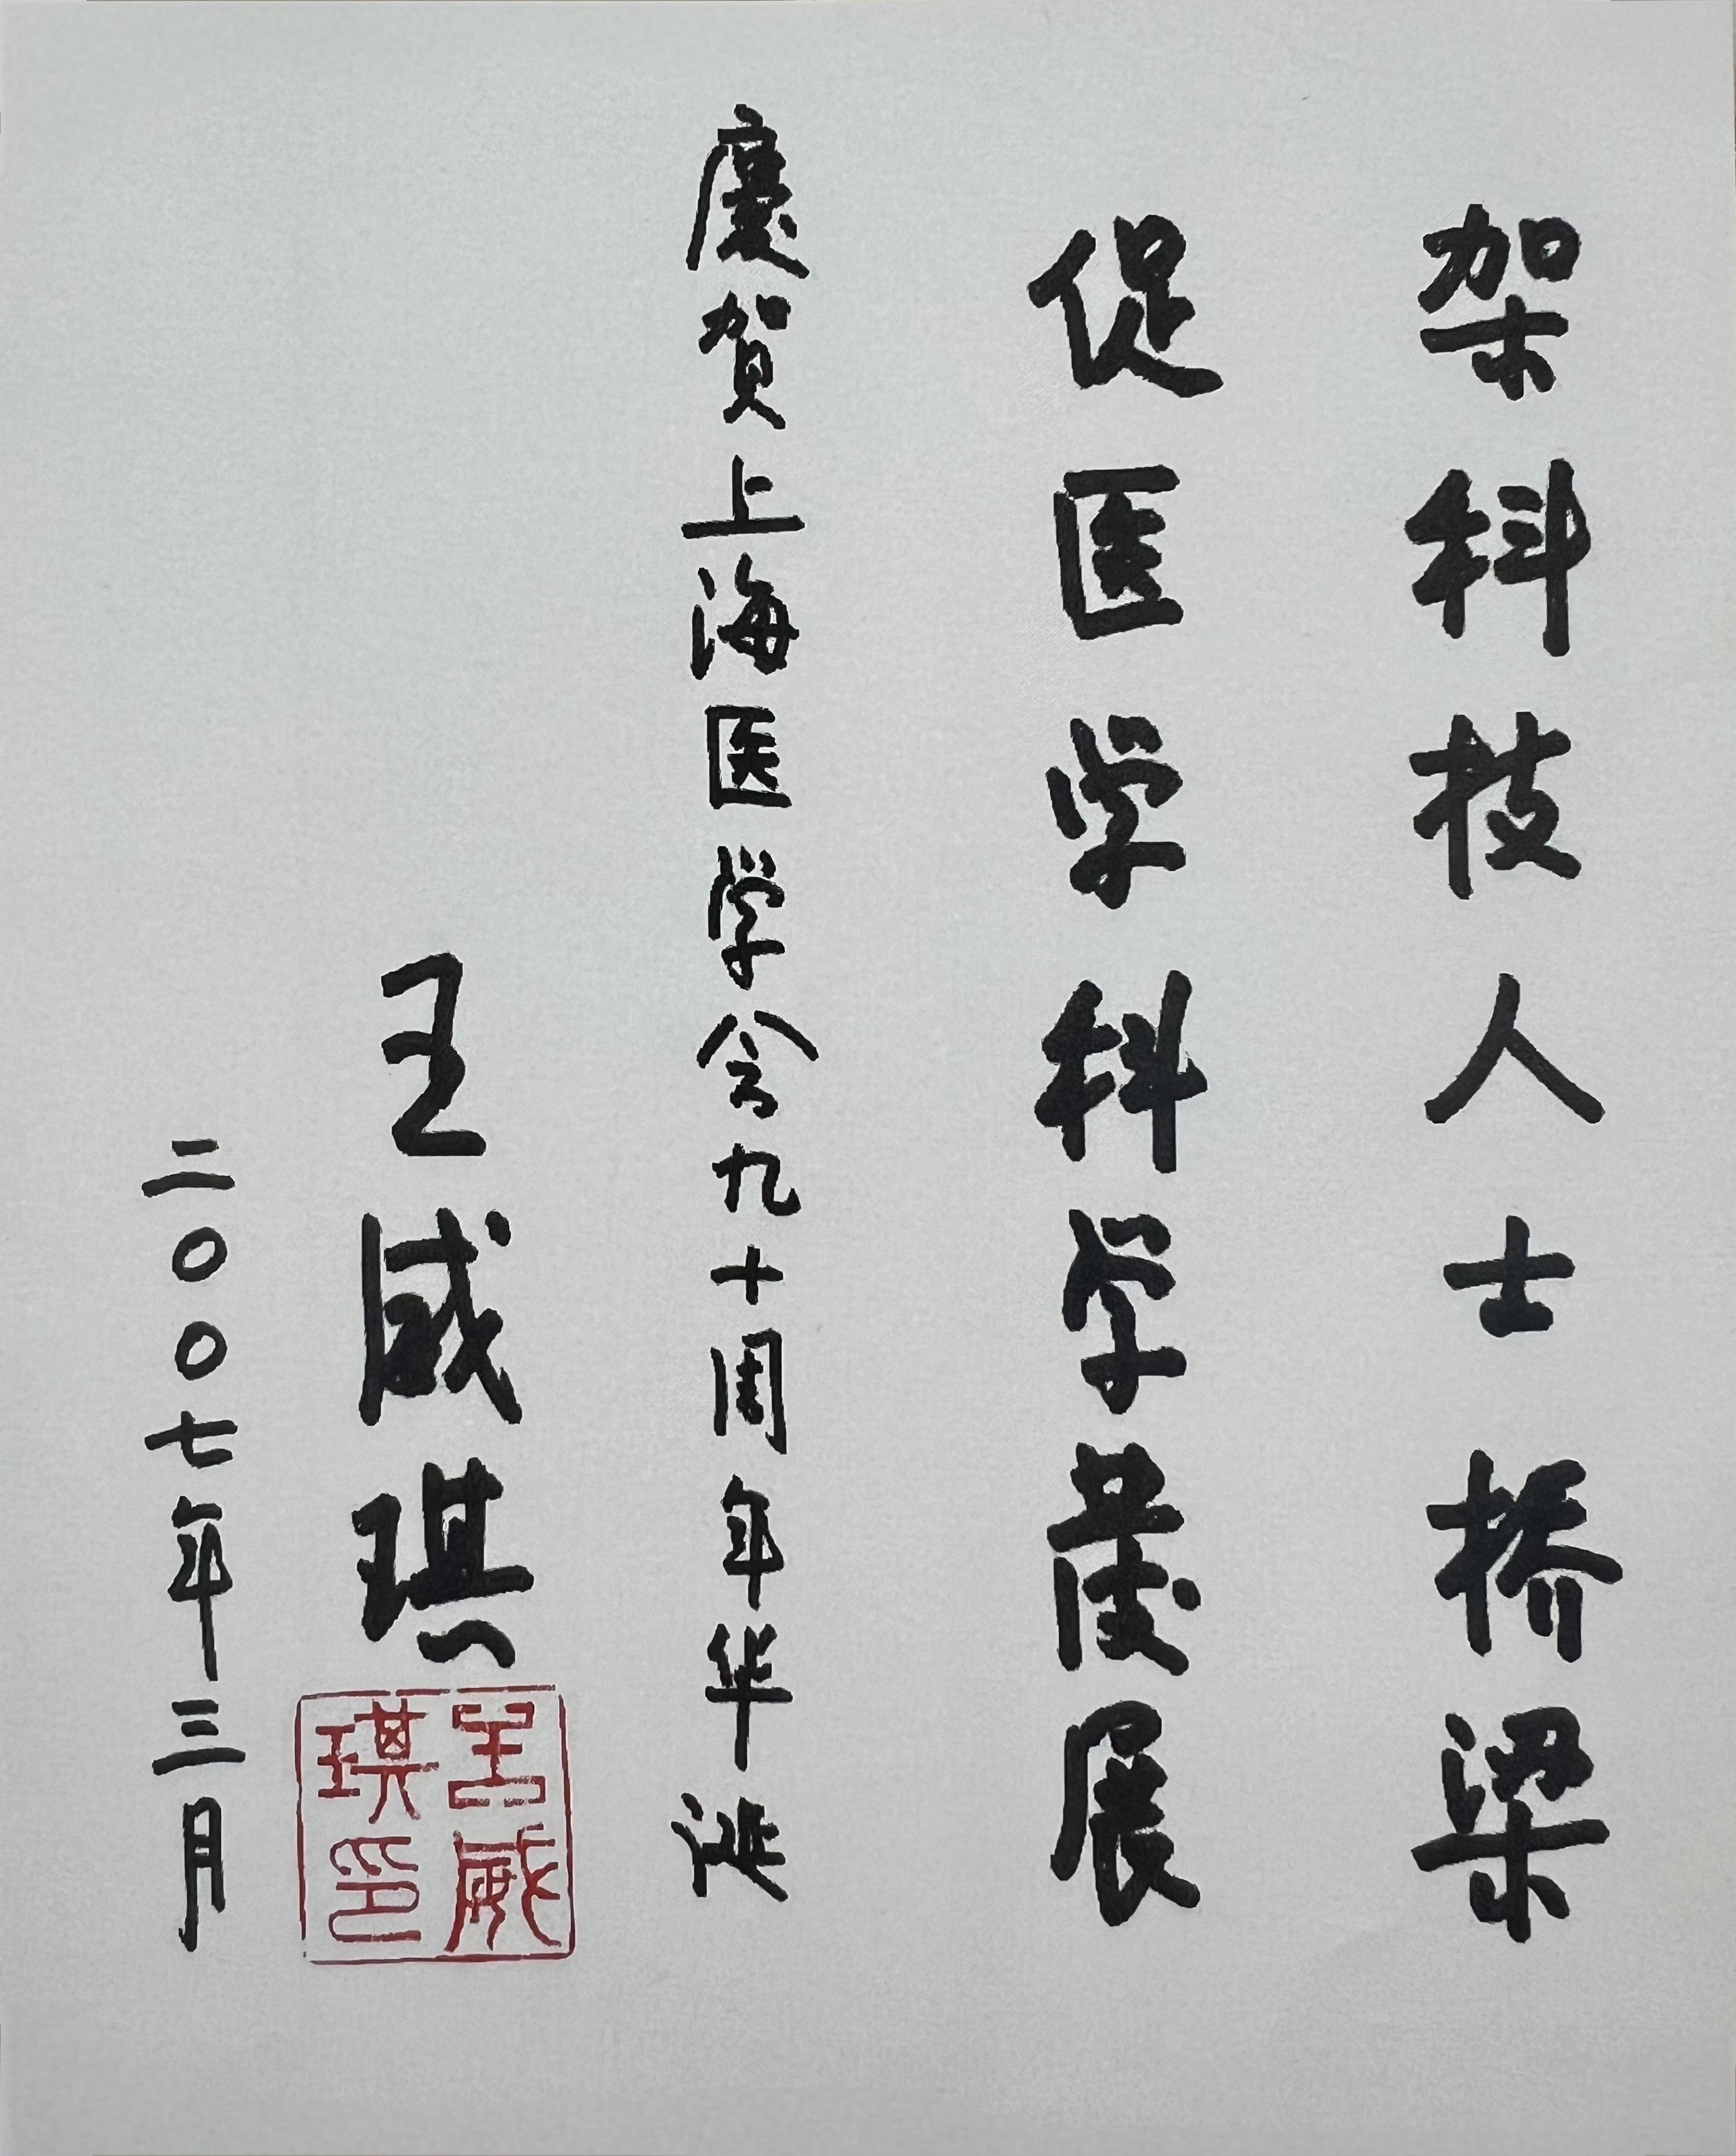 架科技人士桥梁
促医学科学發展
慶贺上海医学会九十周年华诞
王威琪
二〇〇七年三月
王威琪印